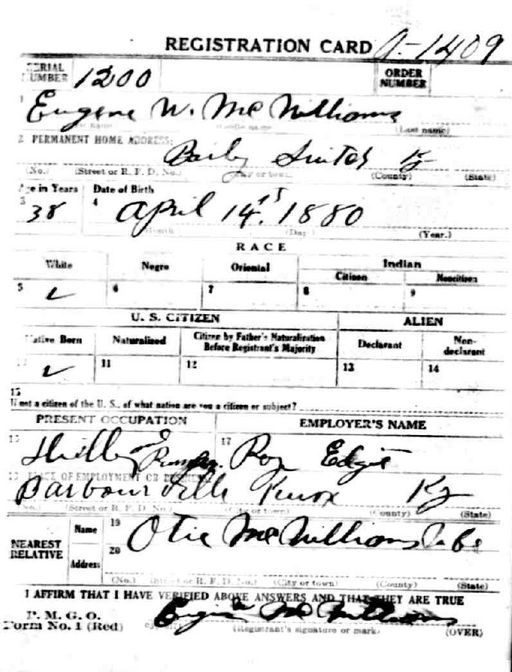 REGISTRATION CARD A-1409
SERIAL NUMBER 1200 ORDER NUMBER
1 Eugene W. McWilliams
(Last name)
2 PERMANENT HOME ADDRESS:
Ky
(No.) (Street or R. F. D. No.) (City or town) (County) (State)
Age in Years Date of Birth
3 38 4 April 14. 1880
(Month) (Day) (Year.)
RACE
White Negro Oriental Indian
Citizen Noncitizen
5 ✓ 6 7 8 9
U. S. CITIZEN ALIEN
Native Born Naturalized Citizen by Father's Naturalization Before Registrant's Majority Declarant Non-declarant
10 ✓ 11 12 13 14
15
If not a citizen of the U. S., of what nation are you a citizen or subject?
PRESENT OCCUPATION EMPLOYER'S NAME
16 17 Roy
18 PLACE OF EMPLOYMENT OR BUSINESS
Barbourville Knox Ky
(No.) (Street or R. F. D. No.) (City or town) (County) (State)
NEAREST RELATIVE Name 19 McWilliams
Address 20
(No.) (Street or R. F. D. No.) (City or town) (County) (State)
I AFFIRM THAT I HAVE VERIFIED ABOVE ANSWERS AND THAT THEY ARE TRUE
P. M. G. O.
Form No. 1 (Red) Eugene McWilliams
(Registrant's signature or mark) (OVER)